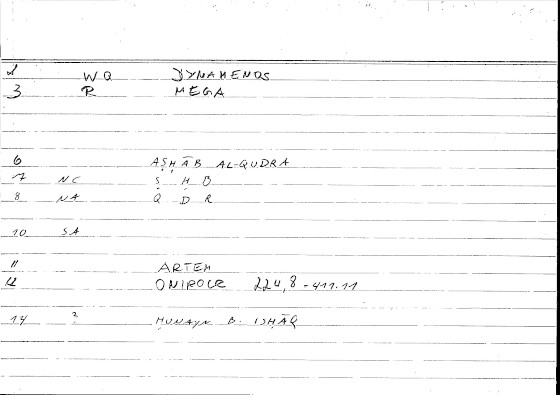 1 WQ DYNAMENOS
3 R MEGA
6 AṢḤĀB AL-QUDRA
7 NC Ṣ Ḥ B
8 NA Q D R
10 SA
11 ARTEM
12 ONIROCR 224,8-411.11
14 ? ḤUNAYN B. ISḤĀQ